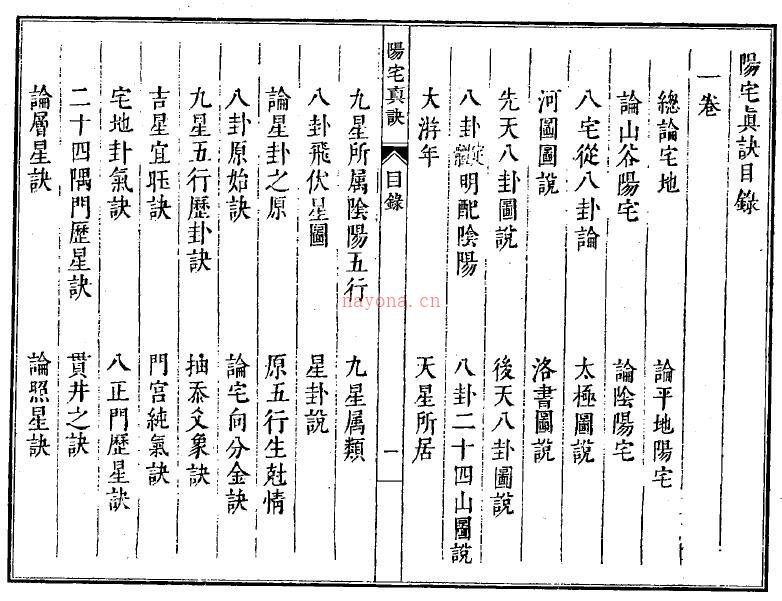 陽宅眞訣目錄
一卷
總論宅地 論平地陽宅
論山谷陽宅 論陰陽宅
八宅從八卦論 太極圖說
河圖圖說 洛書圖說
先天八卦圖說 後天八卦圖說
八卦定明配陰陽 八卦二十四山圖說
大游年 天星所居
陽宅真訣 目錄 一
九星所属陰陽五行 九星属類
八卦飛伏星圖 星卦說
論星卦之原 原五行生尅情
八卦原始訣 論宅向分金訣
九星五行歷卦訣 抽爻象訣
吉星宜旺訣 門宮純氣訣
宅地卦氣訣 八正門歷星訣
二十四隅門歷星訣 貫井之訣
論層星訣 論照星訣
nayona.cn